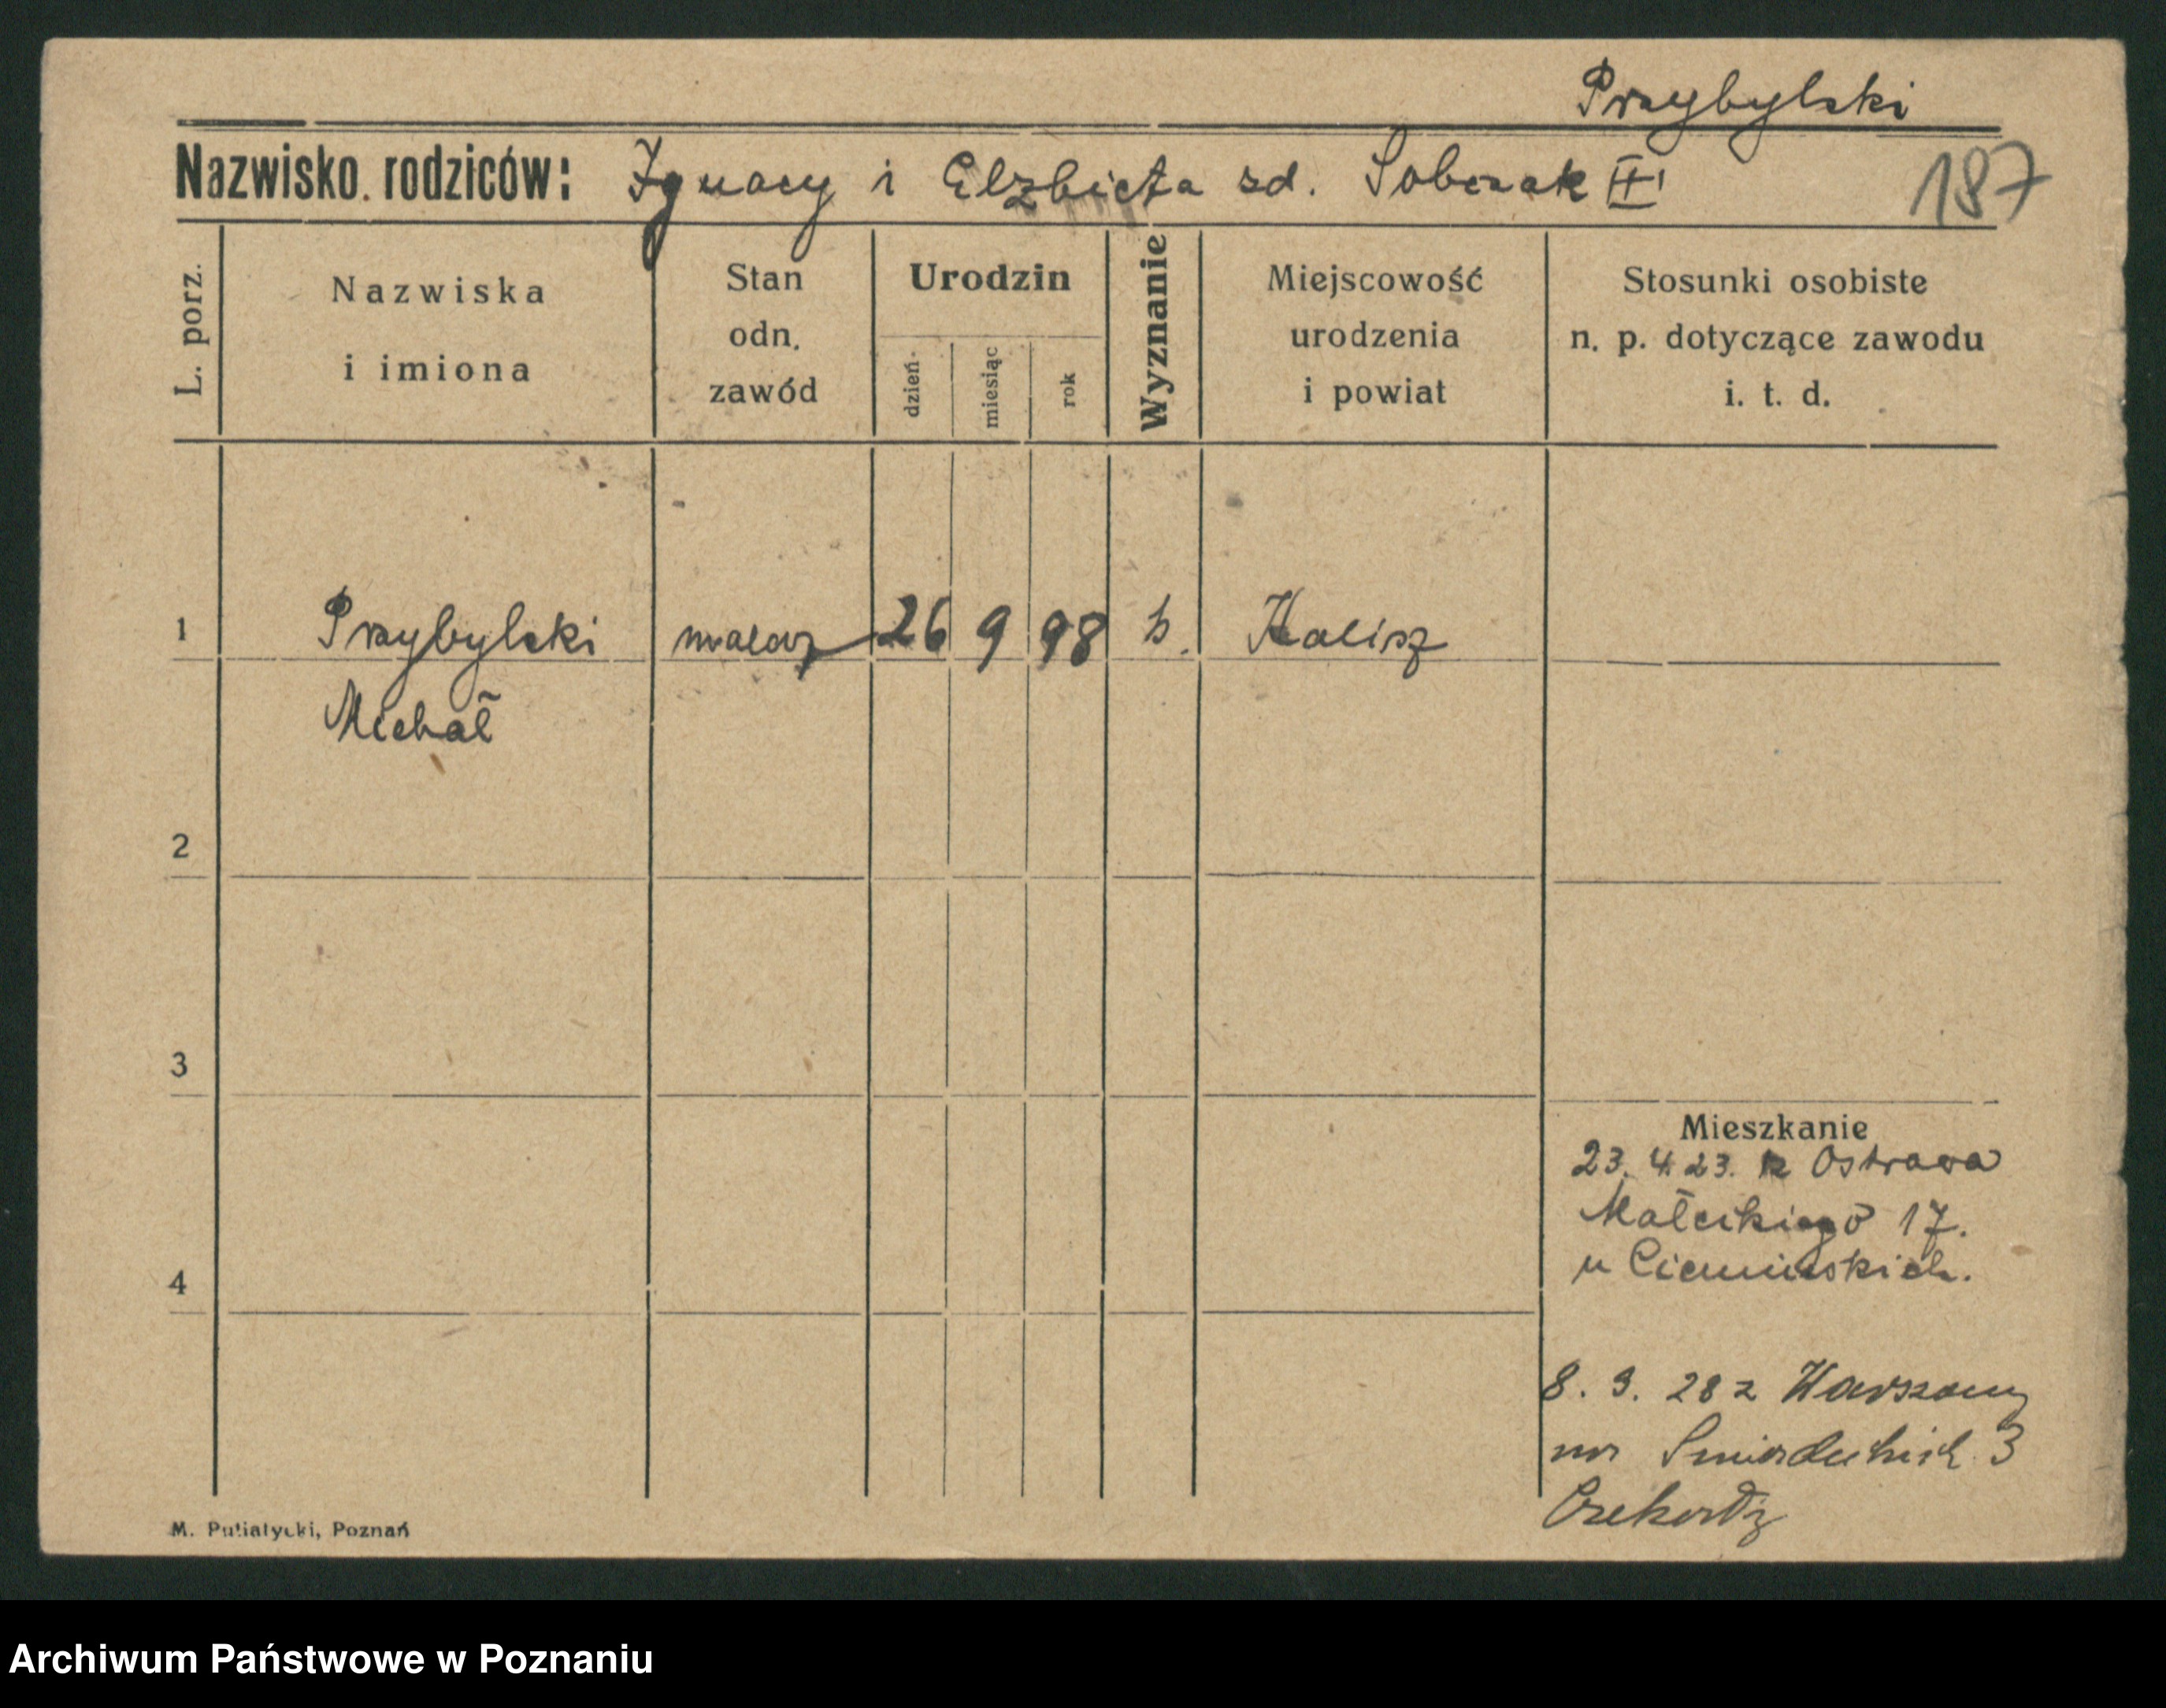 Przybylski
Nazwisko rodziców: Ignacy i Elżbieta zd. Sobczak II
187
L. porz.
Nazwiska
i imiona
Stan
odn.
zawód
Urodzin
dzień
miesiąc
rok
Wyznanie
Miejscowość
urodzenia
i powiat
Stosunki osobiste
n. p. dotyczące zawodu
i. t. d.
1 Przybylski malarz 26 9 98 Kalisz
Michał
2
3
4
Mieszkanie
23. 4. 23. z Ostrowa
Małeckiego 17.
u
8. 9. 28 z Warszawy
3
M. Putiatycki, Poznań
Archiwum Państwowe w Poznaniu